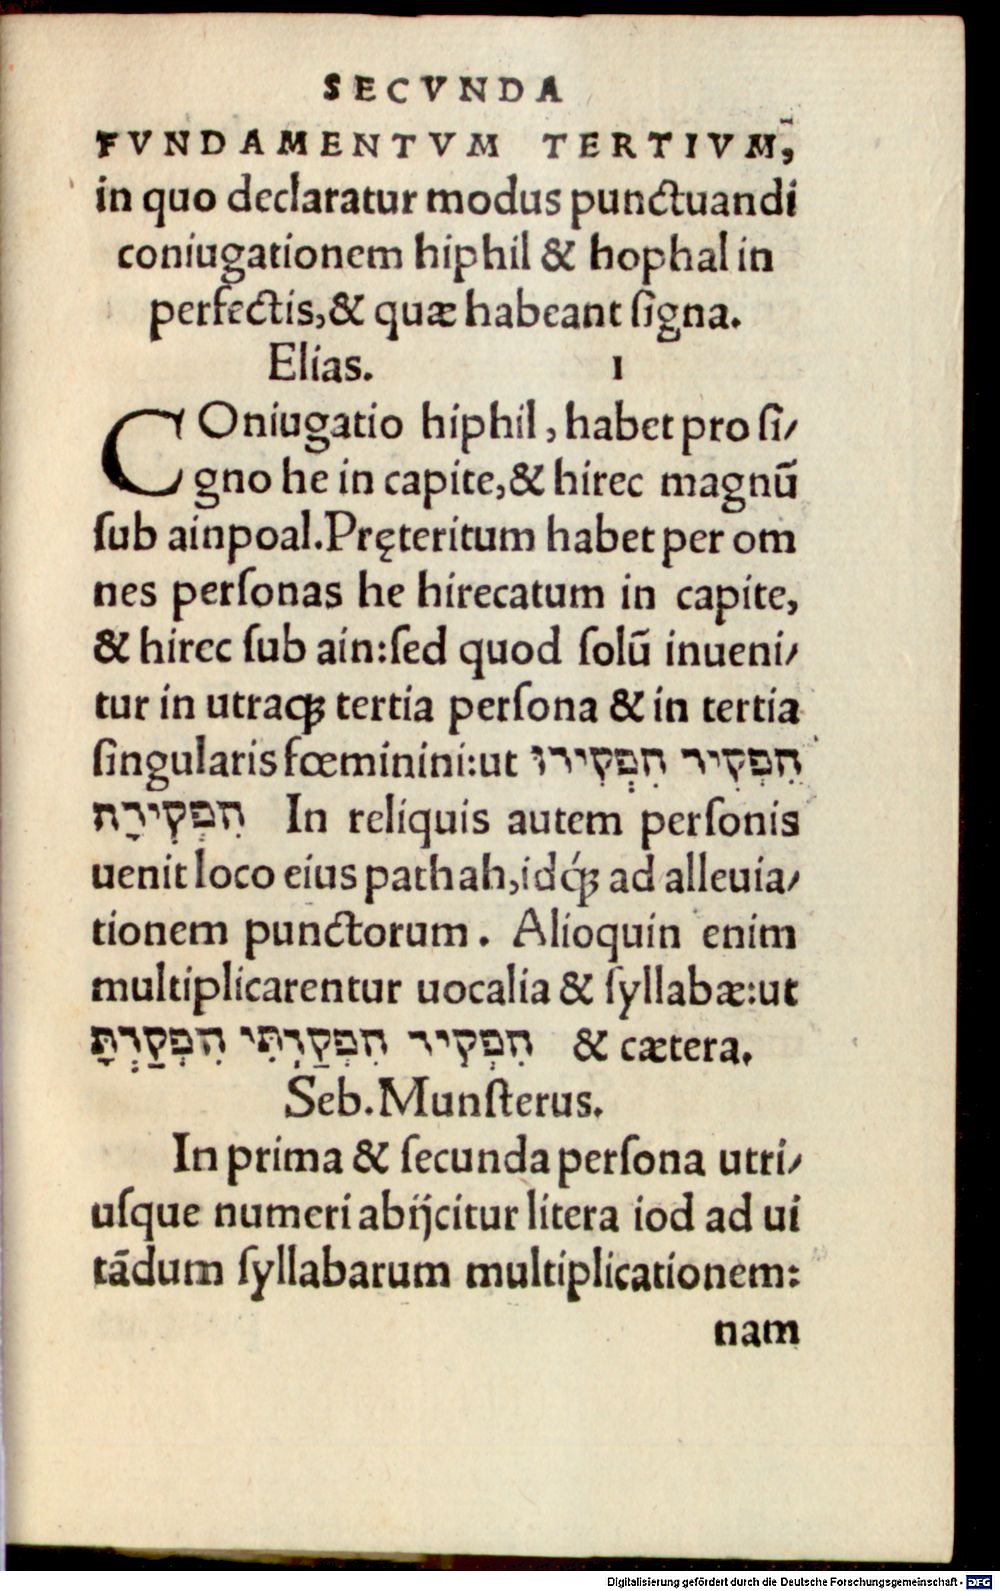 SECVNDA
FVNDAMENTVM TERTIVM,
in quo declaratur modus punctuandi
coniugationem hiphil & hophal in
perfectis, & quæ habeant ſigna.
Elias. 1
COniugatio hiphil, habet pro ſi/
gno he in capite, & hirec magnū
ſub ainpoal. Pręteritum habet per om
nes perſonas he hirecatum in capite,
& hirec ſub ain: ſed quod ſolū inueni/
tur in utraqꝫ tertia perſona & in tertia
ſingularis fœminini: ut הִפְקִיד הִפְקִידוּ
הִפְקִידָה In reliquis autem perſonis
uenit loco eius pathah, idqꝫ́ ad alleuia/
tionem punctorum. Alioquin enim
multiplicarentur uocalia & ſyllabæ: ut
הִפְקִיד הִפְקַדְתִּי הִפְקַדְתָּ & cætera.
Seb. Munſterus.
In prima & ſecunda perſona utri/
uſque numeri abijcitur litera iod ad ui
tādum ſyllabarum multiplicationem:
nam
Digitalisierung gefördert durch die Deutsche Forschungsgemeinschaft - DFG